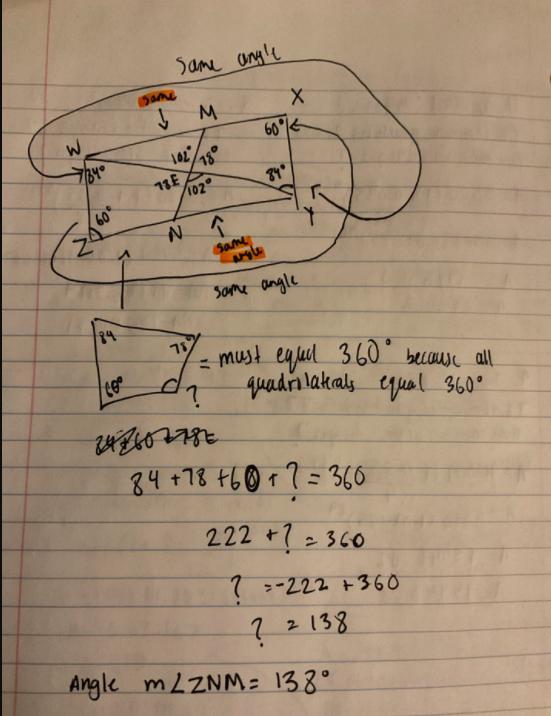 Same angle
same
X
M
60°
W
102° 78°
84°
84°
78E
102°
60°
Y
N
Z
same
angle
same angle
84
78°
60°
?
= must equal 360° because all
quadrilaterals equal 360°
84 + 78 + 60 + ? = 360
222 + ? = 360
? = -222 + 360
? = 138
Angle m∠ZNM = 138°